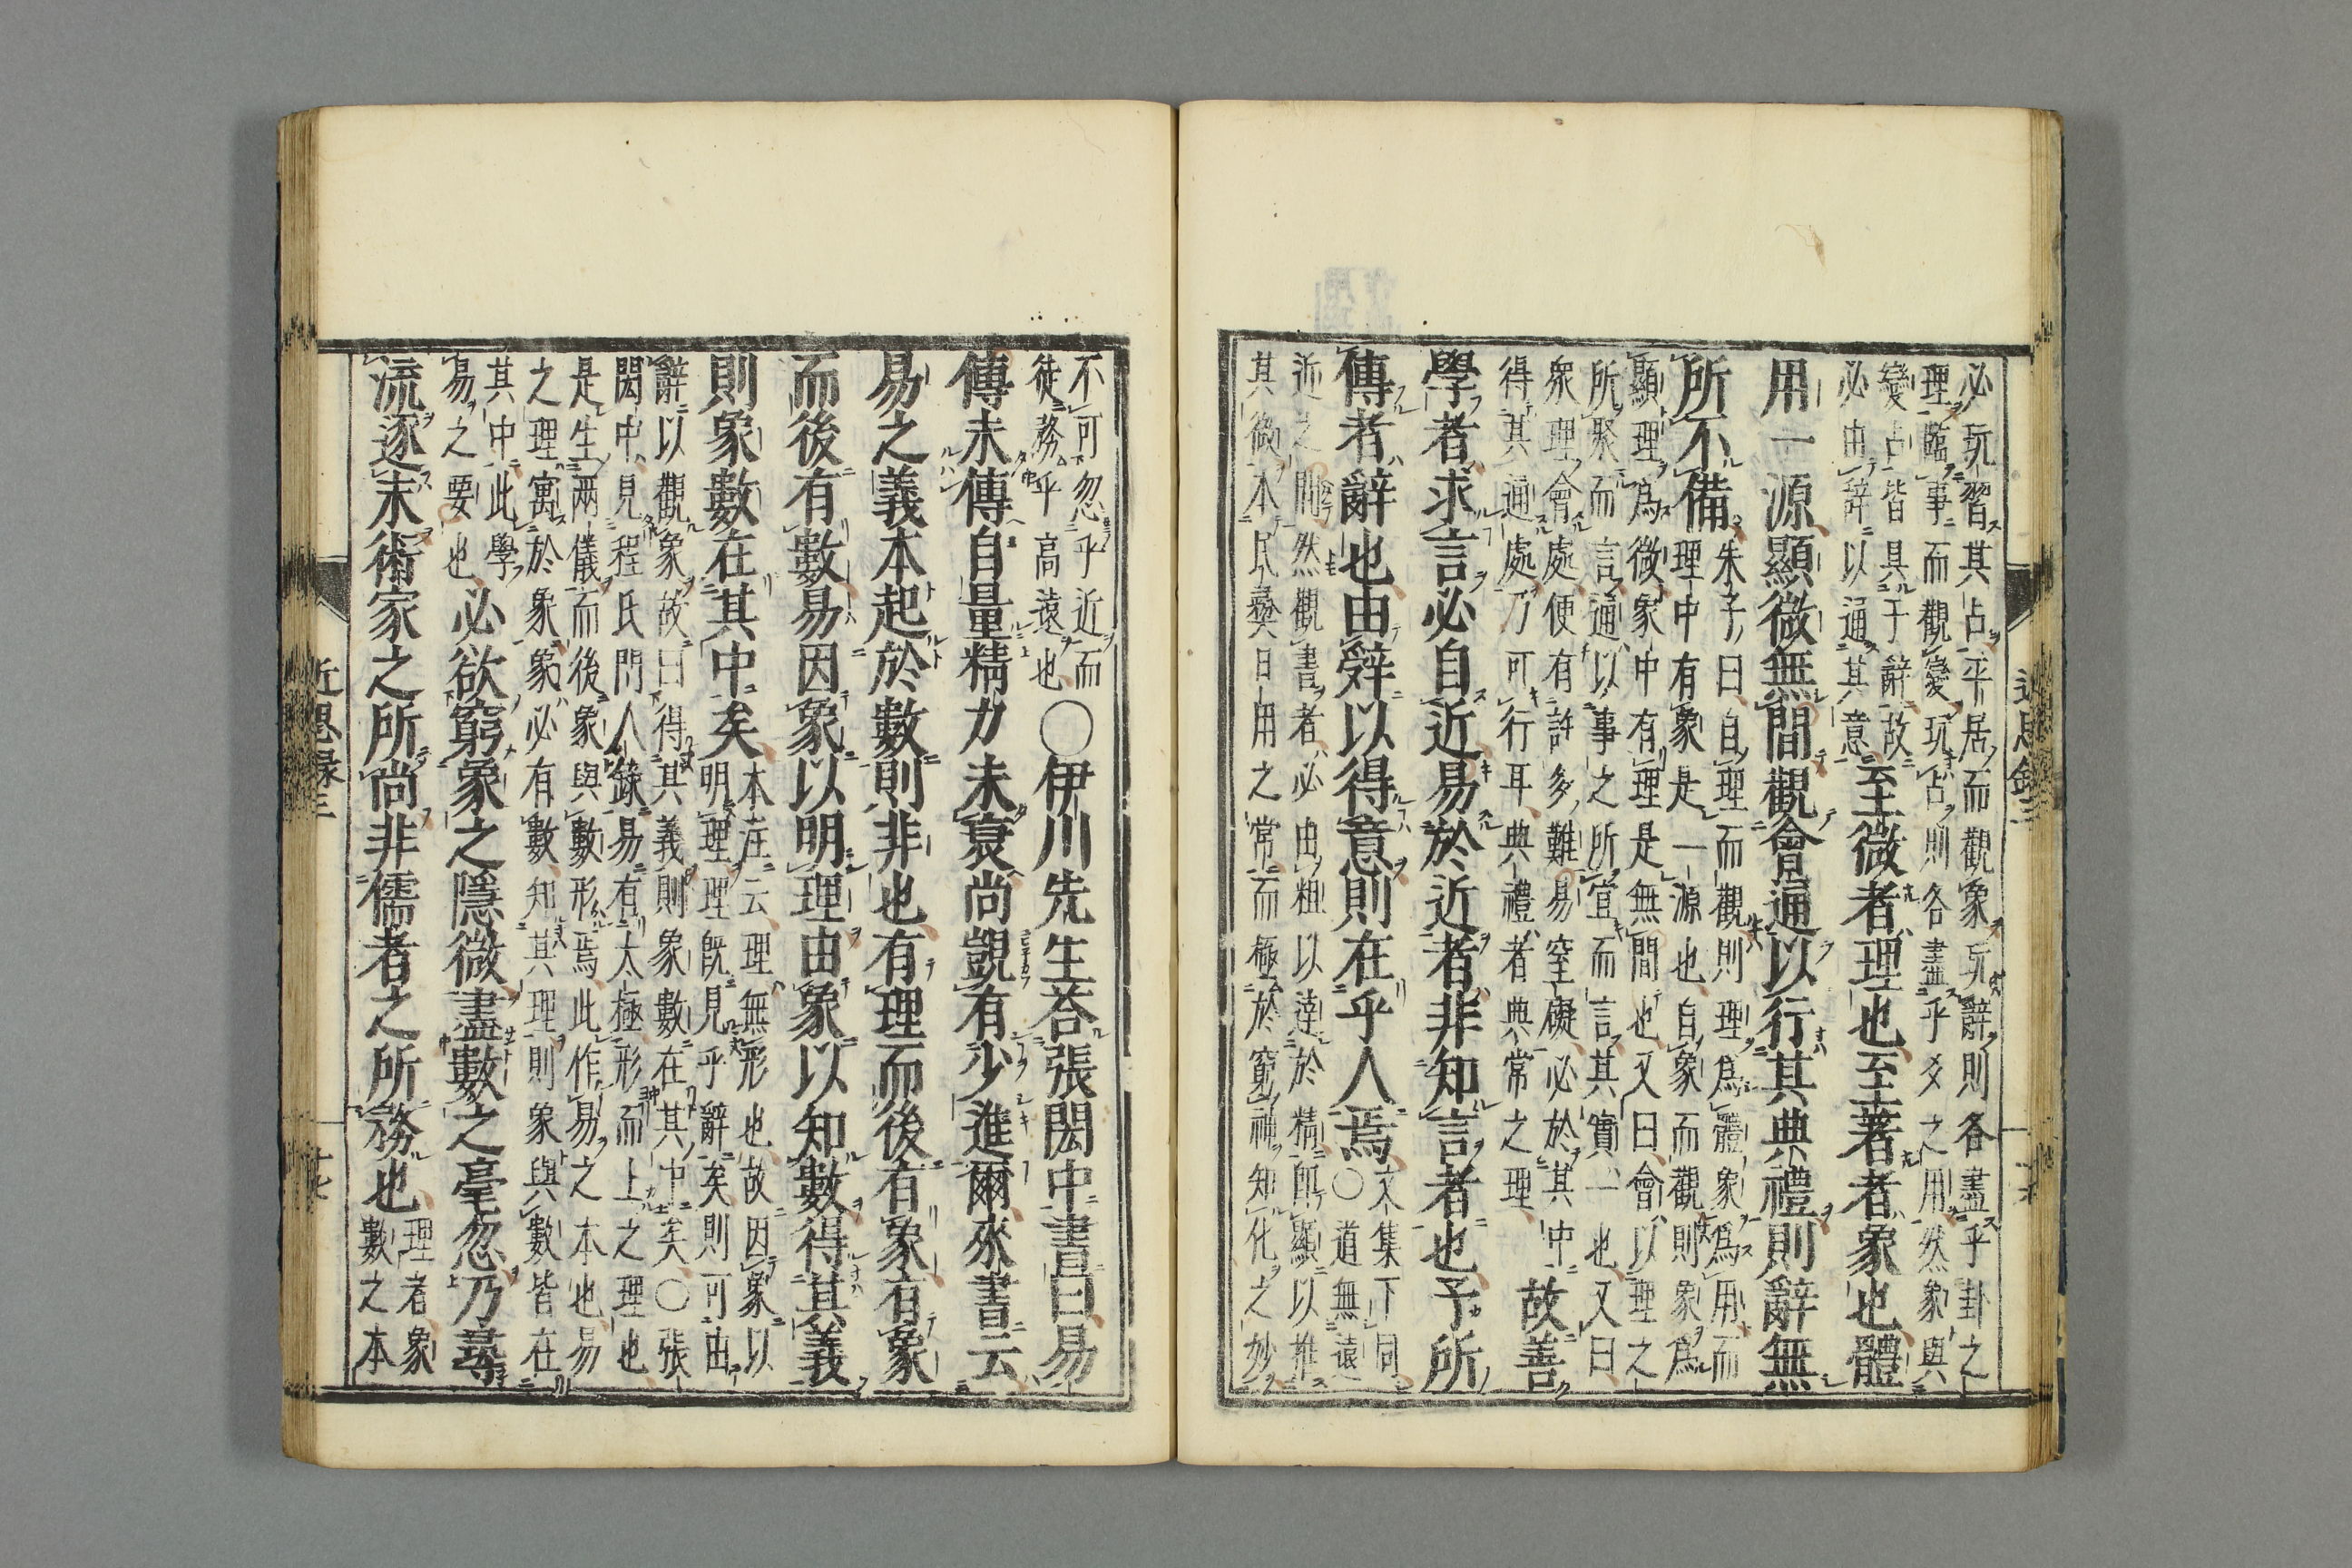 必玩習其占平居而觀象玩辭則各盡乎卦之
理臨事而觀變玩占則各盡乎爻之用然象與
變占皆具于辭故
必由辭以通其意
至微者理也至著者象也體
用一源顯微無間觀會通以行其典禮則辭無
所不備
朱子曰自理而觀則理爲體象爲用而
理中有象是一源也自象而觀則象爲
顯理爲微象中有理是無間也又曰會以理之
所聚而言通以事之所宜而言其實一也又曰
衆理會處便有許多難易窒礙必於其中
得其通處乃可行耳典禮者典常之理
故善
學者求言必自近易於近者非知言者也予所
傳者辭也由辭以得意則在乎人焉
文集下同
○道無遠
近之間然觀書者必由粗以達於精即顯以推
其微本民彝日用之常而極於窮神知化之妙
近思録三
不可忽乎近而
徒務乎高遠也
○伊川先生荅張閎中書曰易
傳未傳自量精力未衰尚覬有少進爾來書云
易之義本起於數則非也有理而後有象有象
而後有數易因象以明理由象以知數得其義
則象數在其中矣
本注云理無形也故因象以
明理理既見乎辭矣則可由
辭以觀象故曰得其義則象數在其中矣○張
閎中見程氏門人錄易有太極形而上之理也
是生兩儀而後象與數形焉此作易之本也易
之理寓於象象必有數知其理則象與數皆在
其中此學
易之要也
必欲窮象之隱微盡數之毫忽乃尋
流逐末術家之所尚非儒者之所務也
理者象
數之本
近思録三
十七